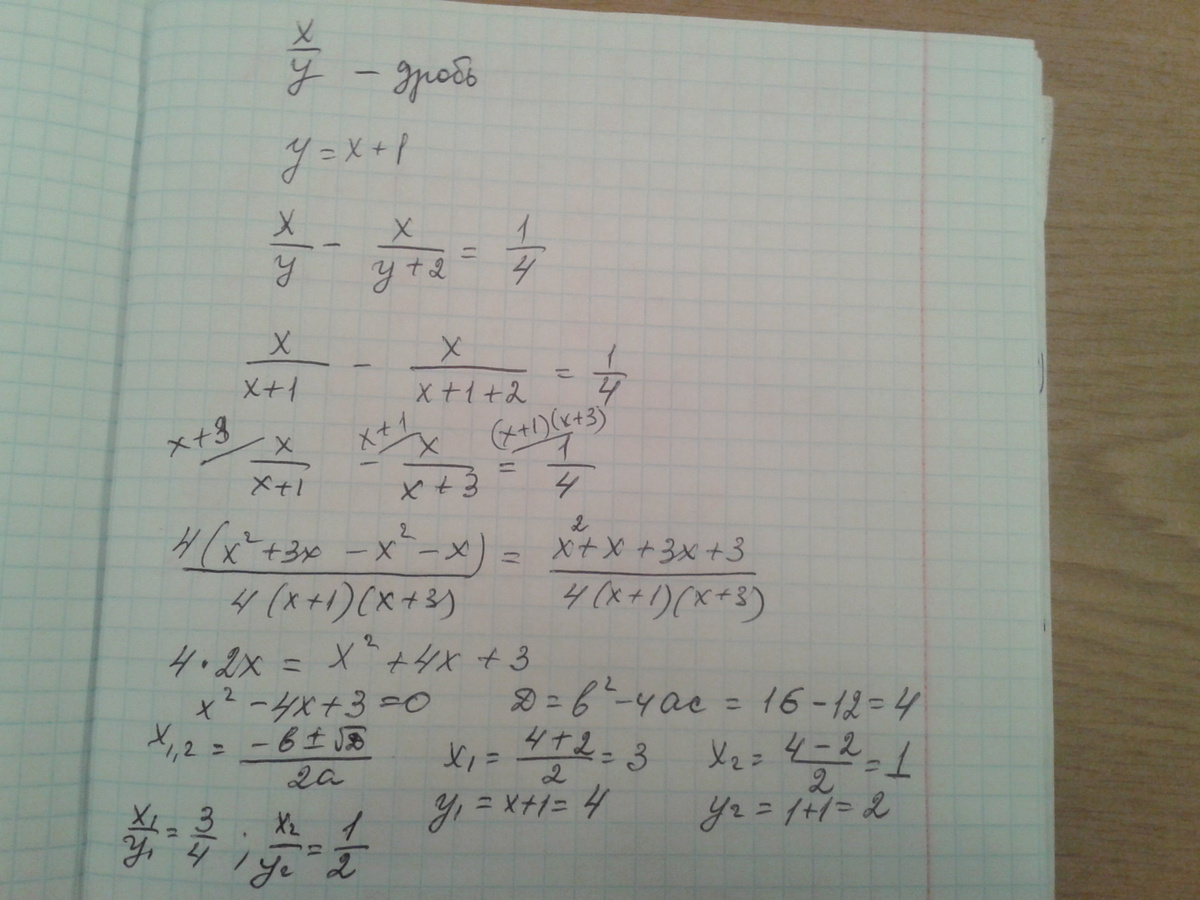 x/y - дробь
y = x + 1
x/y - x/(y + 2) = 1/4
x/(x+1) - x/(x+1+2) = 1/4
x+3 x/(x+1) - x+1 x/(x+3) = (x+1)(x+3) 1/4
4(x² + 3x - x² - x)/4(x+1)(x+3) = x² + x + 3x + 3/4(x+1)(x+3)
4·2x = x² + 4x + 3
x² - 4x + 3 = 0 D = b² - 4ac = 16 - 12 = 4
x₁,₂ = (-b ± √D)/2a x₁ = (4+2)/2 = 3 x₂ = (4-2)/2 = 1
y₁ = x+1 = 4 y₂ = 1+1 = 2
x₁/y₁ = 3/4 ; x₂/y₂ = 1/2